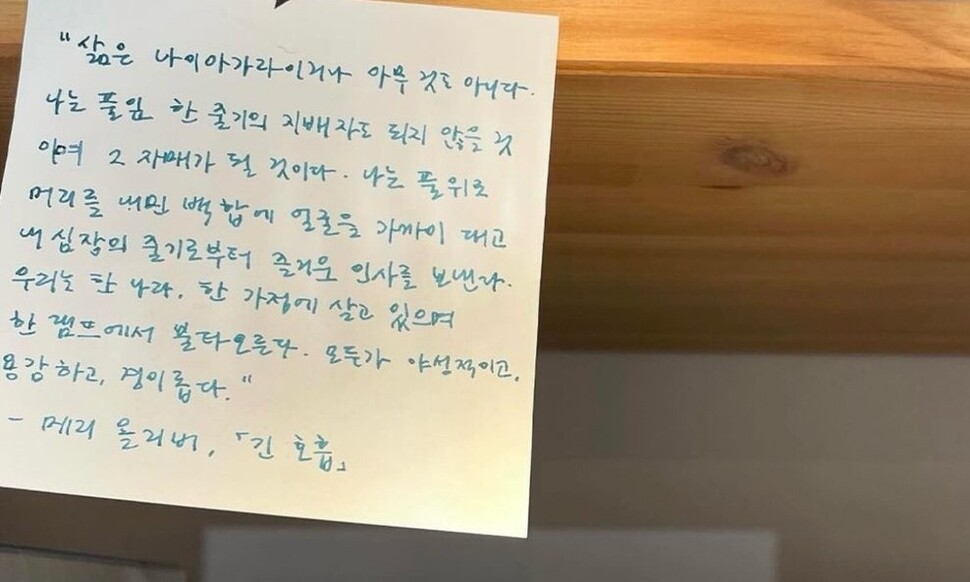 "삶은 나이아가라이거나 아무 것도 아니다.
나는 풀잎 한 줄기의 지배자도 되지 않을 것
이며 그 자매가 될 것이다. 나는 풀 위로
머리를 내민 백합에 얼굴을 가까이 대고
내 심장의 줄기로부터 즐거운 인사를 보낸다.
우리는 한 나라, 한 가정에 살고 있으며
한 램프에서 불타오른다. 모두가 야성적이고,
용감하고, 경이롭다."
- 메리 올리버, 「긴 호흡」